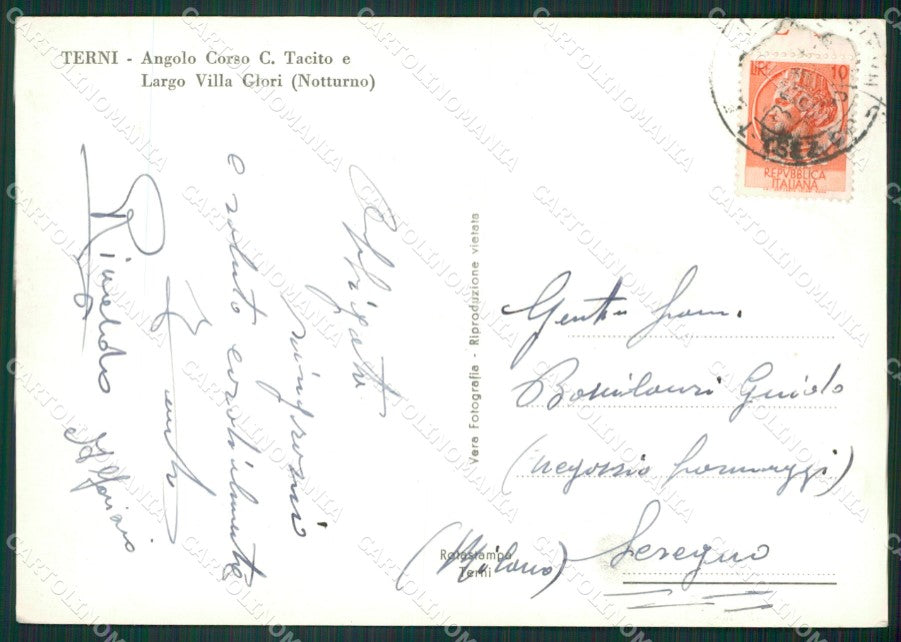 TERNI - Angolo Corso C. Tacito e
Largo Villa Glori (Notturno)
LIRE 10
REPVBBLICA
ITALIANA
Obbligato
ringrazio
e saluto cordialmente
Rinaldo
Alfonso
Vera Fotografia - Riproduzione vietata
Gent. fam.
Guido
(negozio formaggi)
Seregno
(Milano)
Rotastampa
Terni
CARTOLINOMANIA